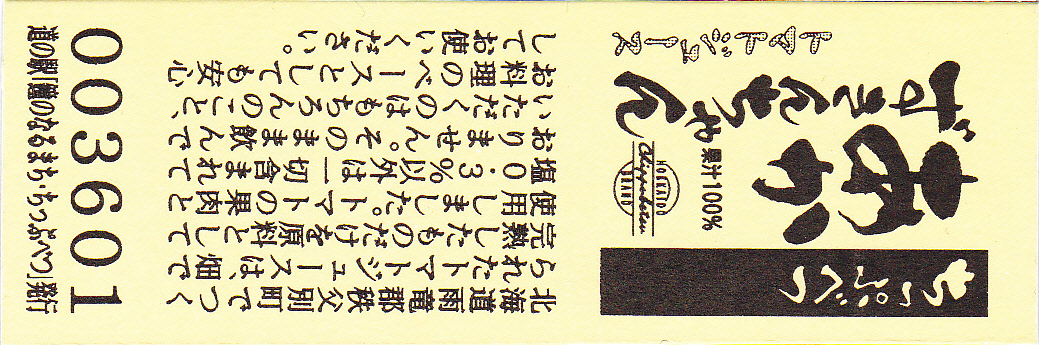 ちっぷべつ
あか
ずきんちゃん
トマトジュース
果汁100%
HOKKAIDO
Chippubetsu
BRAND
北海道雨竜郡秩父別町でつく
られたトマトジュースは、畑で
完熟したものだけを原料として
使用しました。トマトの果肉と
塩0.3%以外は一切含まれて
おりません。そのまま飲んで
いただくのはもちろんのこと、
お料理のベースとしても安心
してお使いください。
003601
道の駅「鐘のなるまち・ちっぷべつ」発行